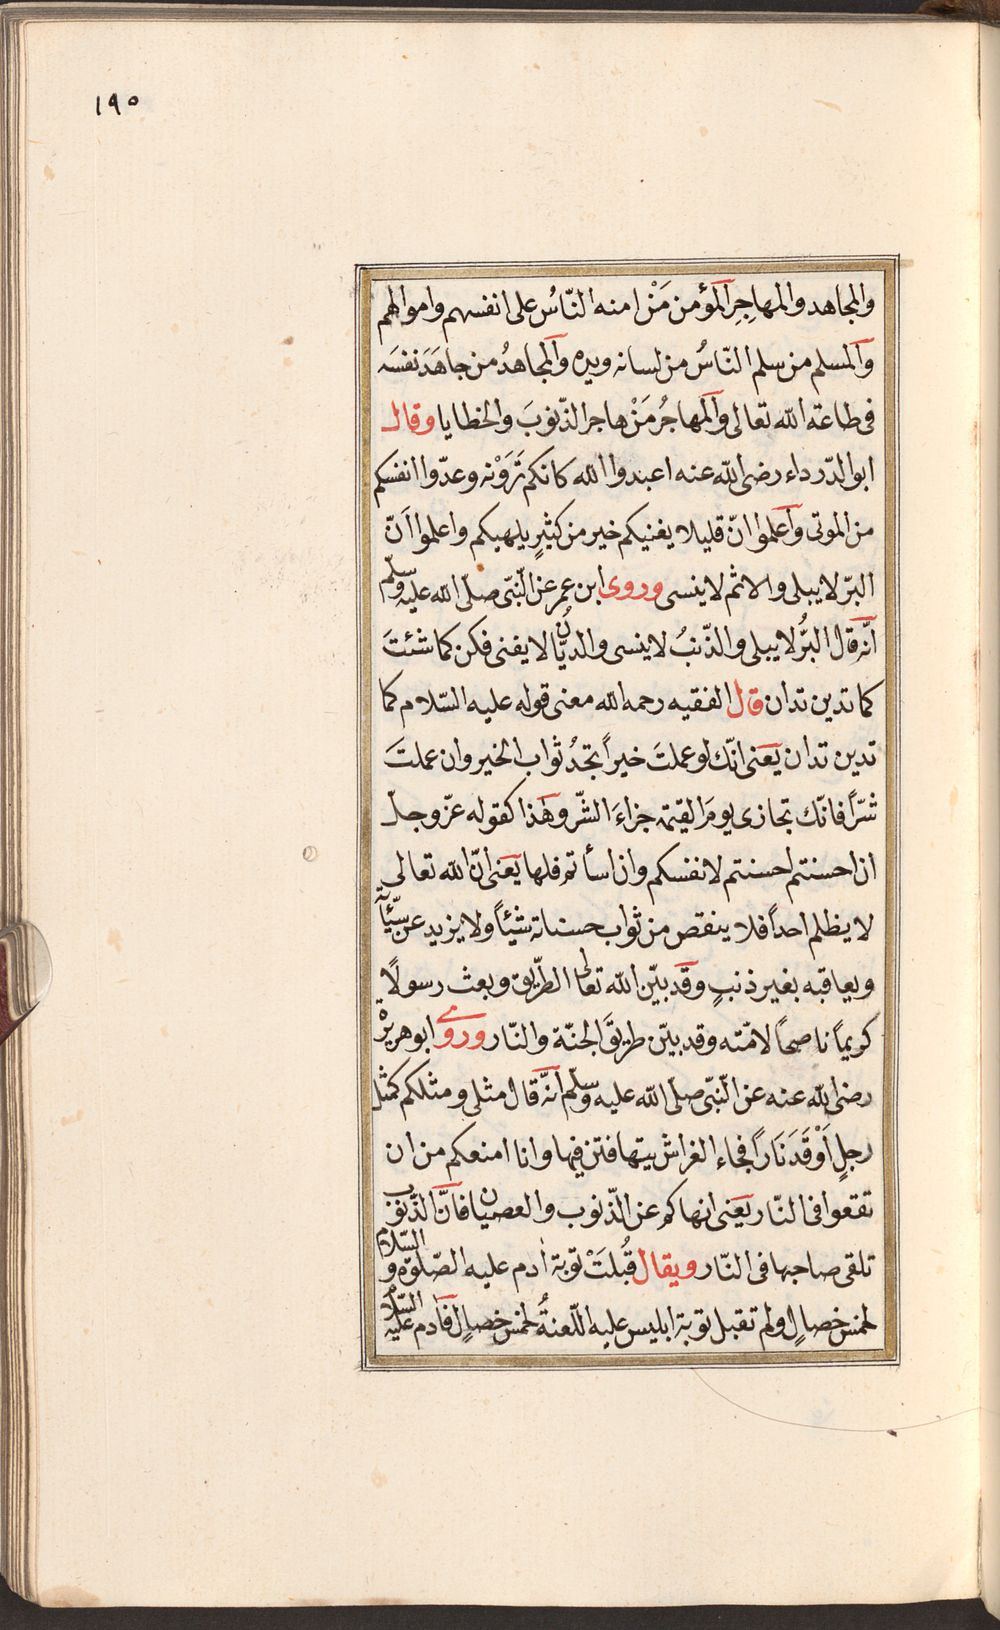 ١٩٥
والمجاهد والمهاجِرِ المؤمن مَنْ امنه النّاسُ على انفسهم واموالهم
والمسلم من سلم النّاسُ من لسانه ويده والمجاهدُ من جاهَدَ نفسَه
فى طاعة الله تعالى والمهاجُر مَنْ هاجر الذّنوبَ والخطايا وقال
ابو الدّرداء رضى الله عنه اعبدوا الله كانكم تَرَوْنه وعدّوا انفسكم
من الموتى واعلموا انّ قليلا يغنيكم خير من كثيرٍ يلهيكم واعلموا انّ
البرّ لا يبلى والاثم لا ينسى وروى ابن عمر عن النّبىّ صلّى الله عليه وسلّم
انّه قال البرُّ لا يبلى والذّنبُ لا ينسى والديّانُ لا يفنى فكن كما شئتَ
كما تدين تدان قال الفقيه رحمه الله معنى قوله عليه السّلام كما
تدين تدان يَعنى انّك لو عملتَ خيراً تجدُ ثواب الخير وان عملتَ
شرّاً فانّك تجازى يومَ القيمة جزاءَ الشّر وهذا كقوله عزّ وجلّ
ان احسنتم احسنتم لانفسكم وان اسأتم فلها يَعنى انّ الله تعالى
لا يظلم احداً فلا ينقص من ثواب حسناته شيئاً ولا يزيد عن سيّئآته
ويعاقبه بغير ذنبٍ وقد بيّن الله تعالى الطّريق وبعث رسولًا
كريماً ناصحاً لامّته وقد بيّن طريقَ الجنّة والنّار وروى ابو هريرة
رضى الله عنه عن النّبىّ صلّى الله عليه وسلّم انّه قال مثلى ومثلكم كمثل
رجلٍ اَوْقَدَ نَاراً فجاء الفراش يتهافتن فيها وانا امنعكم من ان
تقعوا فى النّار يَعنى انهاكم عن الذّنوب والعصيان فانَّ الذّنوب
تلقى صاحبها فى النّار ويقال قُبلَتْ توبة ادم عليه الصّلوٰة والسّلام
لخمس خصالٍ ولم تقبل توبة ابليس عليه اللّعنةُ لخمس خصالٍ فآدم عليه السّلام